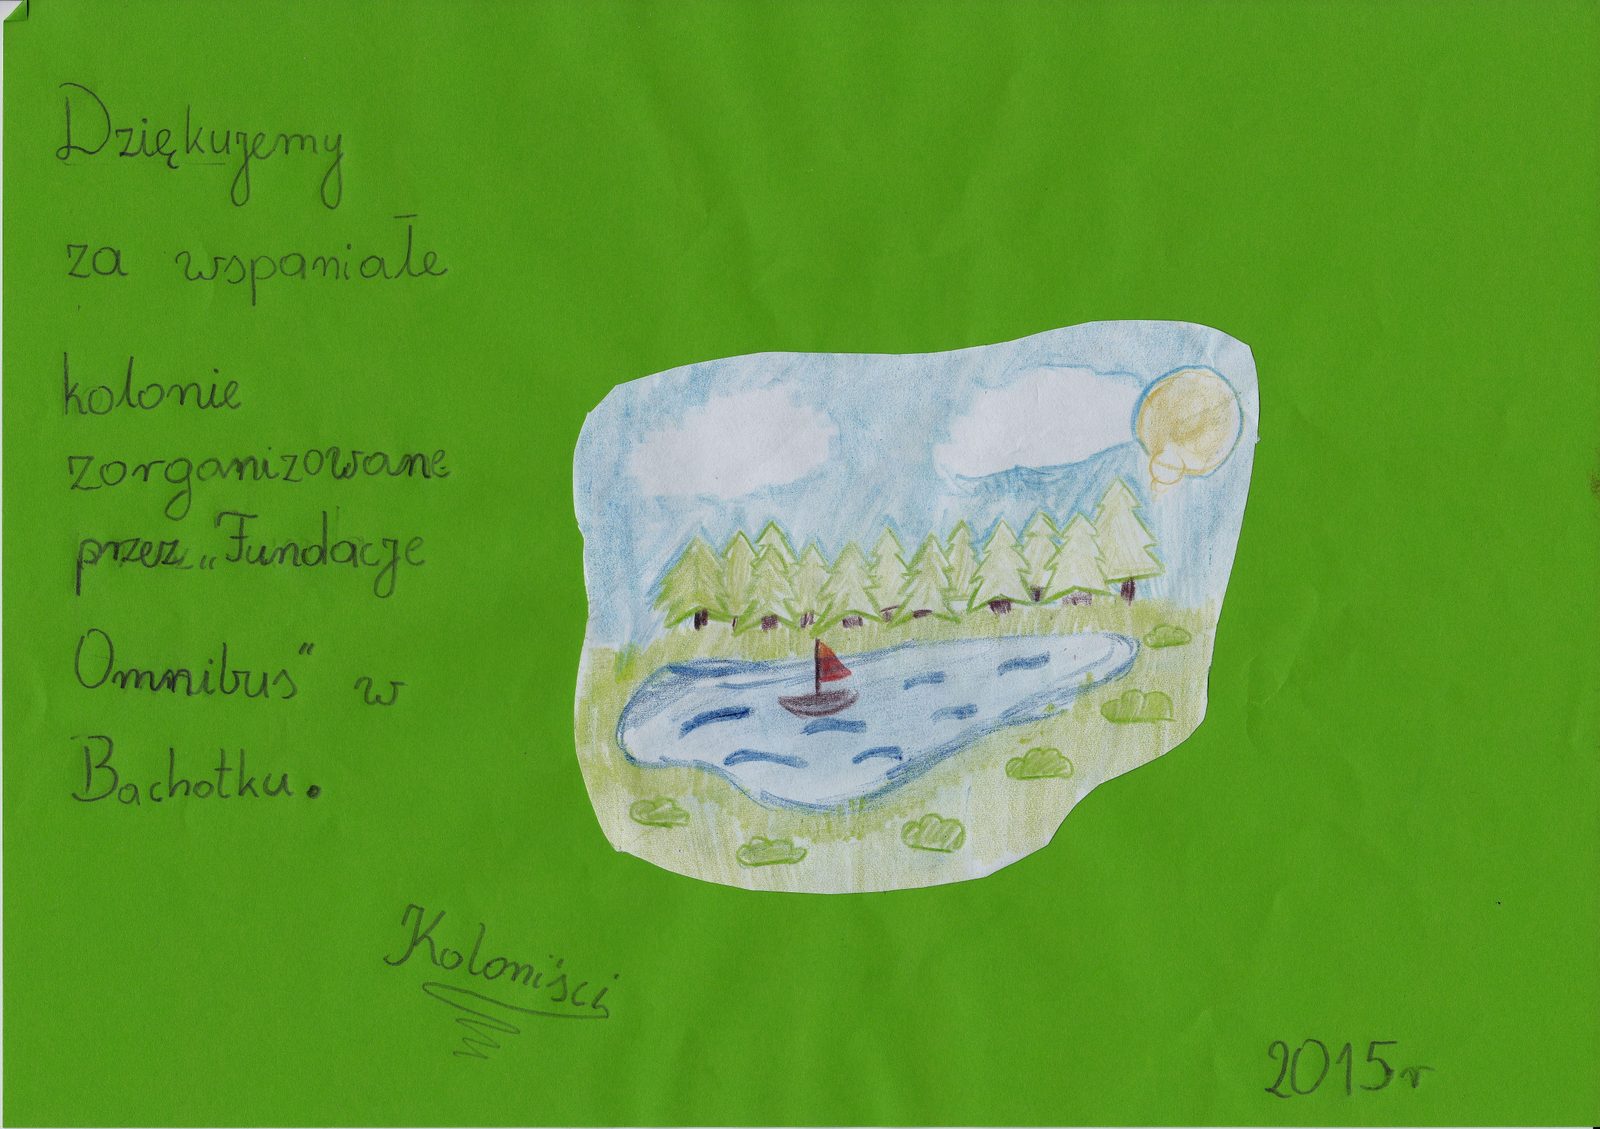 Dziękujemy
za wspaniałe
kolonie
zorganizowane
przez „Fundacje
Omnibus" w
Bachotku.
Koloniści
2015r